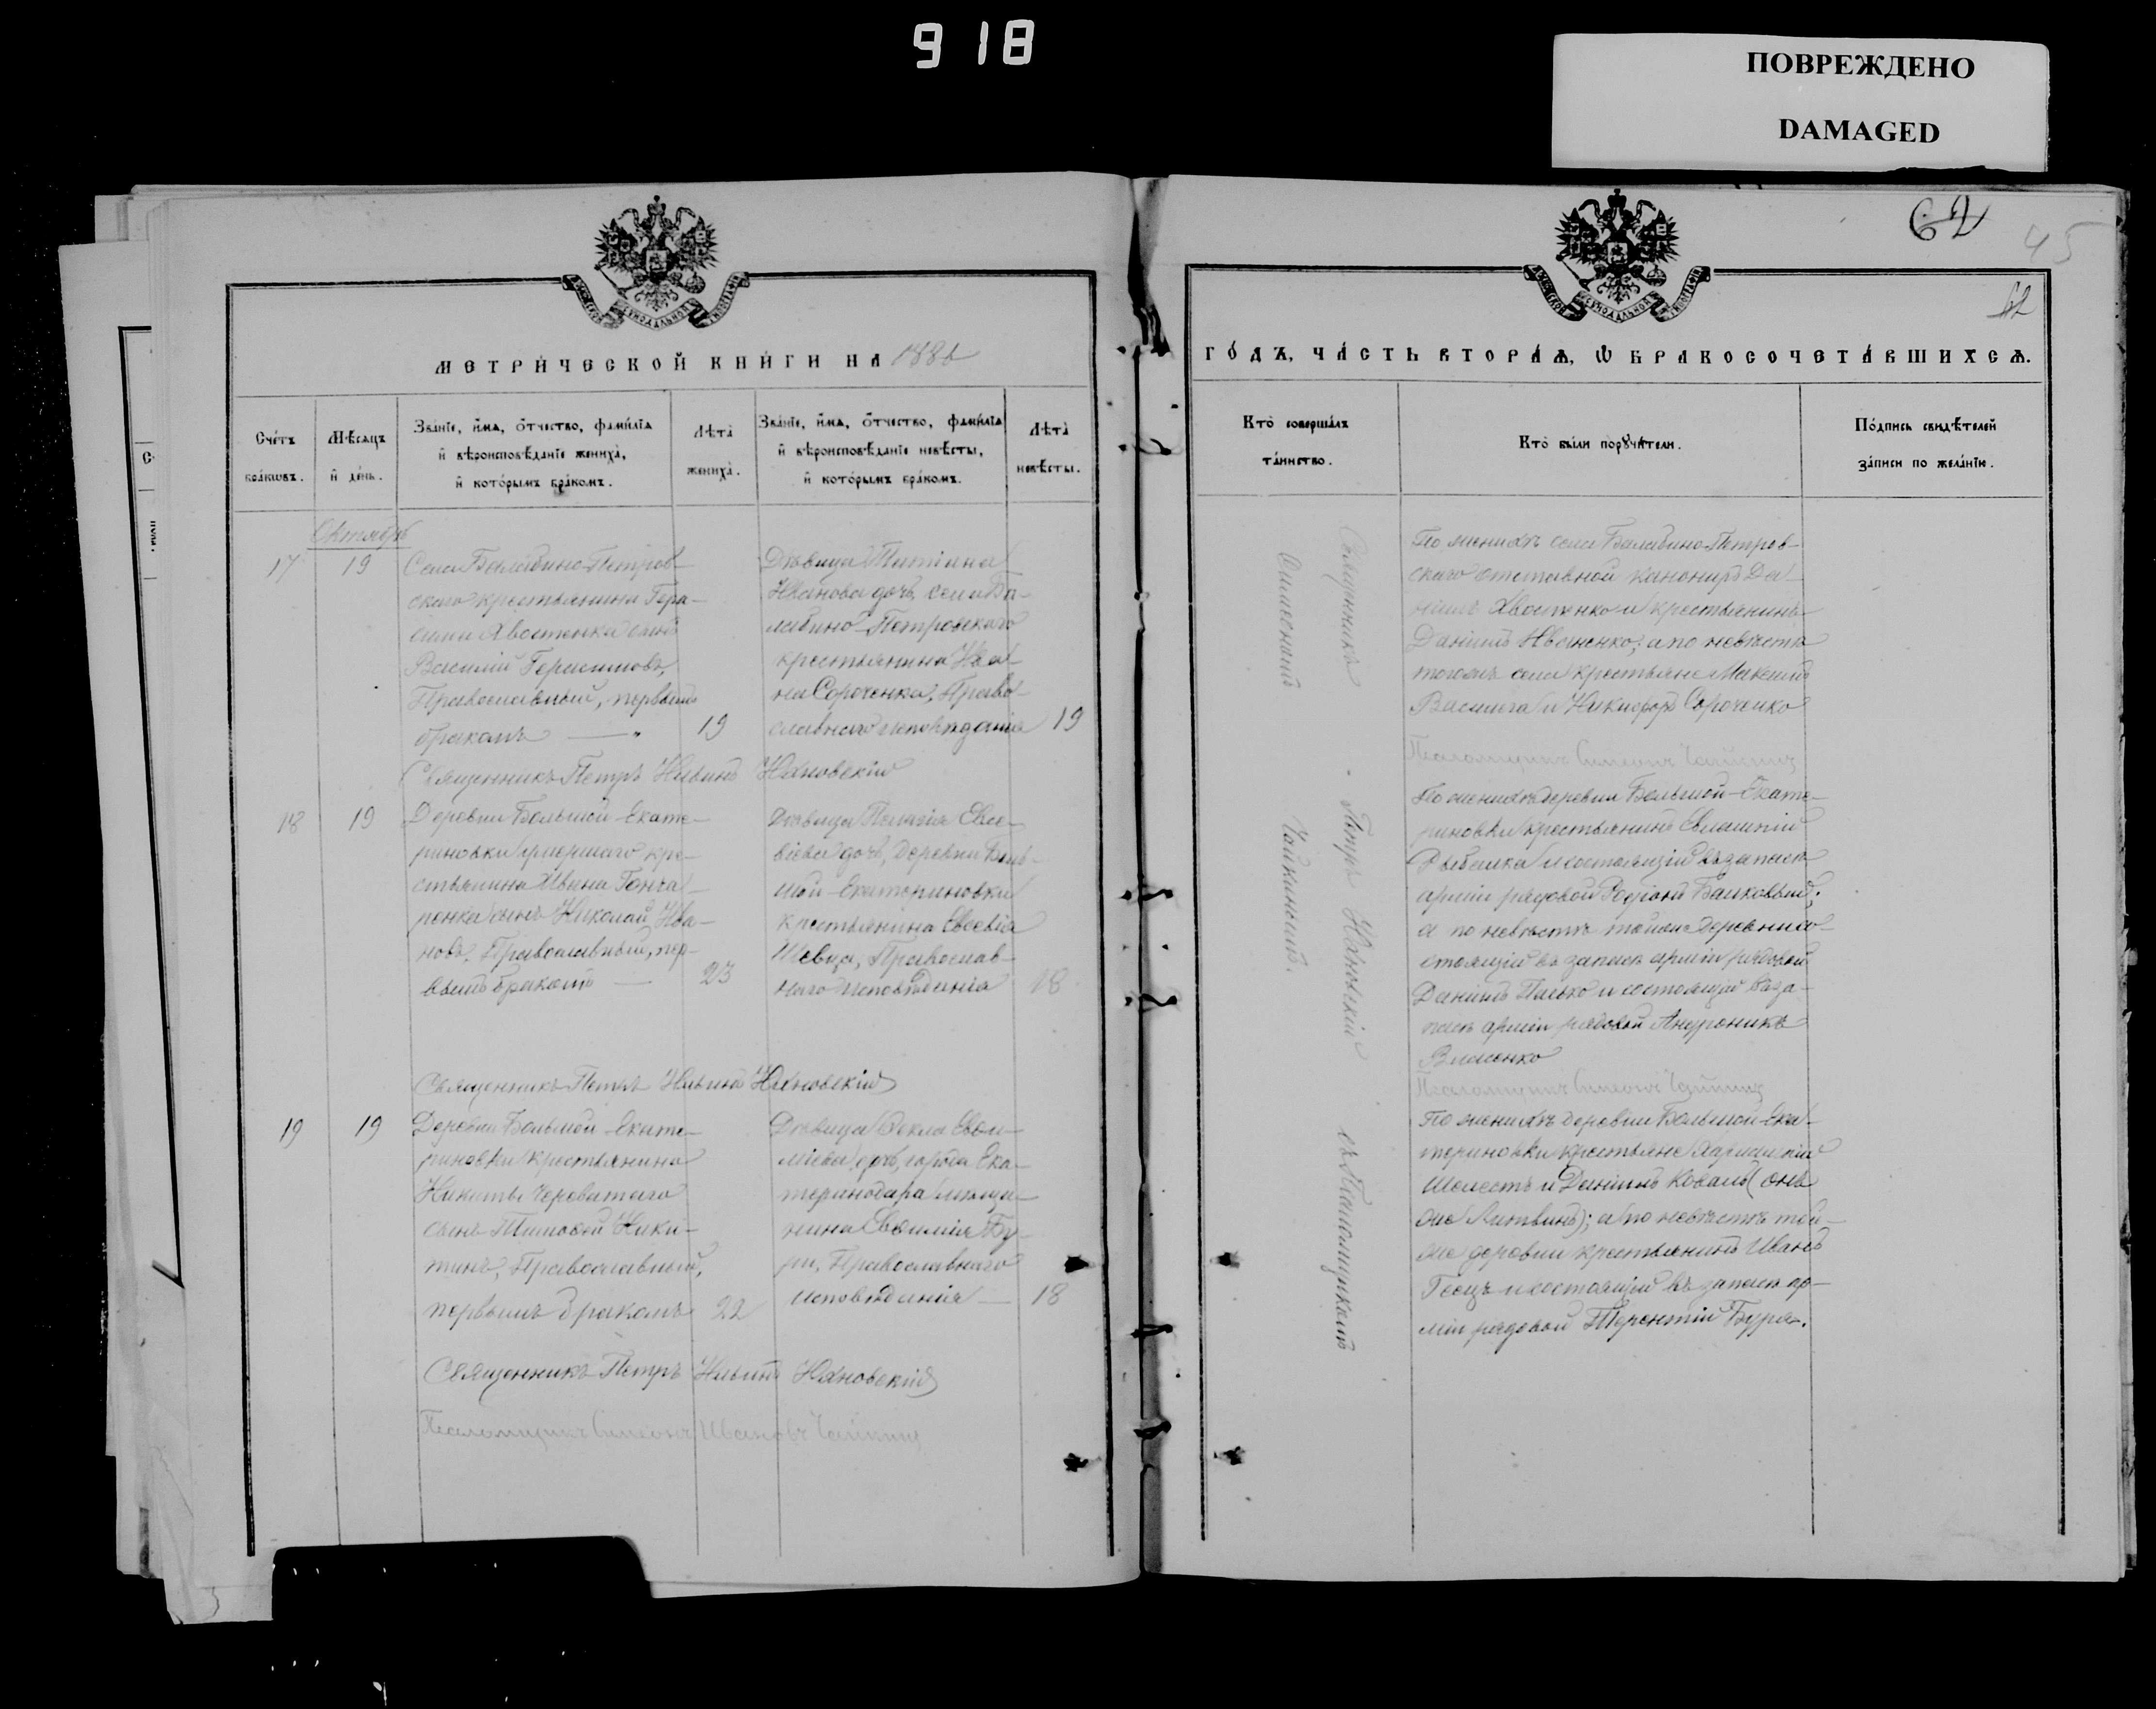 918
ПОВРЕЖДЕНО
DAMAGED
62
45
42
МЕТРИ́ЧЕСКОЙ КНИ́ГИ НА 1886
Сче́тъ бра́кѡвъ.
Мѣ́сяцъ и҆ де́нь.
Зва́нїе, и҆́мѧ, ѻ҆́тчество, фами́лїѧ и҆ вѣроисповѣ́данїе жениха̀, и҆ кото́рымъ бра́комъ.
Лѣ́та̀ жениха̀.
Зва́нїе, и҆́мѧ, ѻ҆́тчество, фами́лїѧ и҆ вѣроисповѣ́данїе невѣ́сты, и҆ кото́рымъ бра́комъ.
Лѣ́та̀ невѣ́сты.
Октябрь
17
19
Села Балабино-Петров-
скаго крестьянина Гера-
сима Хвостенка сынъ
Василій Герасимовъ,
Православный, первымъ
бракомъ —„
19
Дѣвица Татіана
Иванова дочь, села Ба-
лабино-Петровскаго
крестьянина Ива-
на Сороченка, Право-
славнаго исповѣданія
19
Священникъ Петръ Ильинъ Юхновскій
18
19
Деревни Большой-Екате-
риновки умершаго кре-
стьянина Ивана Гонча-
ренка сынъ Николай Ива-
новъ, Православный, пер-
вымъ бракомъ —
23
Дѣвица Пелагія Евсе-
віева дочь, деревни Боль-
шой-Екатериновки
крестьянина Евсевія
Шевца, Православ-
наго исповѣданія
18
Священникъ Петръ Ильинъ Юхновскій
19
19
Деревни Большой-Екате-
риновки крестьянина
Никиты Череватаго
сынъ Тимофей Ники-
тинъ, Православный,
первымъ бракомъ
22
Дѣвица Ѳекла Евѳи-
міева дочь, города Ека-
теринодара мѣща-
нина Евѳимія Бу-
ри, Православнаго
исповѣданія —
18
Священникъ Петръ Ильинъ Юхновскій
Псаломщикъ Симеонъ Ивановъ Чайкинъ
ГО́ДЪ, ЧА́СТЬ ВТОРА́Ѧ, Ѡ҆ БРАКОСОЧЕТА́ВШИХСѦ.
Кто̀ соверша́лъ та́инство.
Кто̀ бы́ли порꙋчи́тели.
По́дпись свидѣ́телей за́писи по жела́нїю.
Священникъ Петръ Юхновскій съ Псаломщикомъ
Симеономъ Чайкинымъ.
По женихѣ села Балабино-Петров-
скаго отставной канониръ Да-
ніилъ Хвостенко и крестьянинъ
Даніилъ Иваненко; а по невѣстѣ
тогожъ села крестьяне Максимъ
Васильев и Никифоръ Сороченко
Псаломщикъ Симеонъ Чайкинъ
По женихѣ деревни Большой-Екате-
риновки крестьянинъ Евлампій
Рыбалка и состоящій въ запасѣ
арміи рядовой Родіонъ Балковый;
а по невѣстѣ тойже деревни со-
стоящій въ запасѣ арміи рядовой
Даніилъ Палько и состоящій въ за-
пасѣ арміи рядовой Андроникъ
Власенко
Псаломщикъ Симеонъ Чайкинъ
По женихѣ деревни Большой-Ека-
териновки крестьяне Харлампій
Шелестъ и Даніилъ Коваль (онъ
же Литвинъ); а по невѣстѣ той-
же деревни крестьянинъ Иванъ
и состоящій въ запасѣ ар-
міи рядовой Терентій Буря.